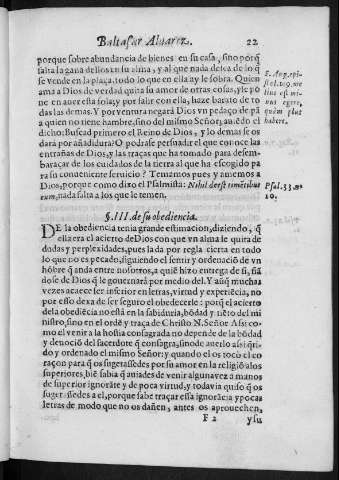 Baltasar Aluarez. 22
porque sobre abundancia de bienes en su casa, sino porq̃
falta la gana dellos en su alma, y al que nada dessea de lo q̃
se vende en la plaça, todo lo que en ella ay le sobra. Quien
ama a Dios de verdad quita su amor de otras cosas, y le po
ne en auer essa sola; y por salir con ella, haze barato de to
das las demas. Y por ventura negarà Dios vn pedaço de pã
a quien no tiene hambre, sino del mismo Señor; auiẽdo el
dicho: Buscad primero el Reino de Dios, y lo demas se os
darà por añadidura? O podrase persuadir el que conoce las
entrañas de Dios, y las traças que ha tomado para desem-
baraçar de los cuidados de la tierra al que ha escogido pa
ra su conueniente seruicio? Temamos pues y amemos a
Dios, porque como dixo el Psalmista: Nihil deest timẽtibus
eum, nada falta a los que le temen.
S. Aug. epi-
stol. 109. me
lius est mi-
nus egere,
quàm plus
habere.
Psal. 33. nu
10.
§. III. de su obediencia.
DE la obediencia tenia grande estimacion, diziendo, q̃
ella era el acierto de Dios con que vn alma se quita de
dudas y perplexidades, pues la da por regla cierta en todo
lo que no es pecado, siguiendo el sentir y ordenaciõ de vn
hõbre q̃ anda entre nosotros, a quiẽ hizo entrega de si, fiã
dose de Dios que le gouernarà por medio del. Y aũq̃ muchas
vezes acaece ser inferior en letras, virtud y experiẽcia, no
por esso dexa de ser seguro el obedecerle: porq̃ el acierto
dela obediẽcia no està en la sabiduria, bõdad y nero del mi
nistro, sino en el ordẽ y traça de Christo N. Señor. Assi co-
mo el venir a la hostia consagrada no depende de la bõdad
y deuociõ del sacerdote q̃ consagra, sino de auerlo assi q̃ri-
do y ordenado el mismo Señor; y quando el os tocò el co
raçon para q̃ os sugetassedes por su amor en la religiõ alos
superiores, biẽ sabia q̃ auiades de venir alguna vez a manos
de superior ignorãte y de poca virtud, y todavia quiso q̃ os
sugetassedes a el, porque sabe traçar essa ignorãcia y pocas
letras de modo que no os dañen, antes os aprouechen,
F 2 y su